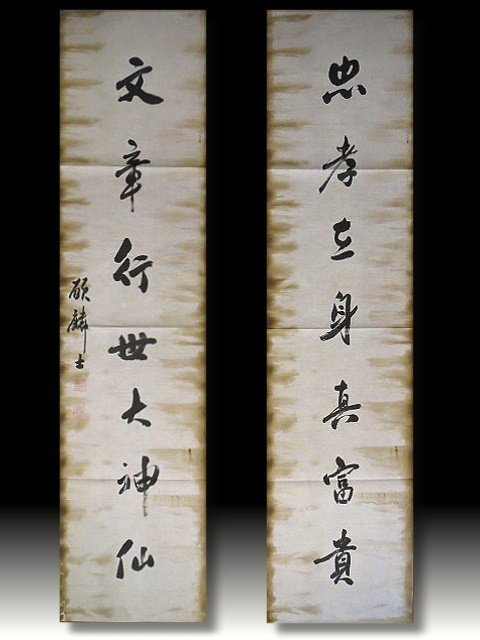 忠孝立身真富貴
文章行世大神仙
顧麟士